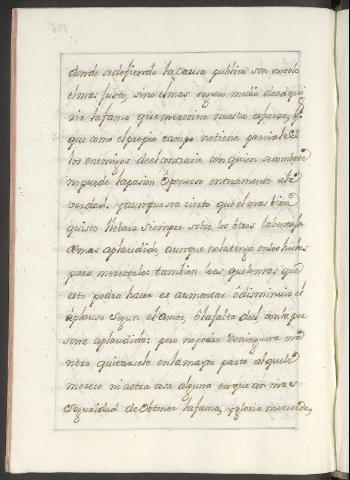 donde sedefiende la Causa publica son nosolo
elmas Justo, sino elmas seguro medio de adqui
rir lafama que mereciere nuestro esfuerso, p.
que como el propio campo notiene parciales
los enemigos del contrario con quien secombate
nopuede lapasion oponerse enteramente ala
verdad. yaunque sea cierto que el mas bien
quisto llebara siempre sobre los otros la bentaja
demas aplaudido, aunque nolatenga enlos hechos
para merecerlo: tambien loes quelomas que
esto podra hacer es aumentar o disminuir el
aplauso segun el amor, o lafalta del en la per
sona aplaudida: pero nopodra deninguna ma
nera quitarsele enlamayor parte al quele
merece ni aotra cosa alguna enque con mas
seguridad de obtener lafama, y gloria merecida,